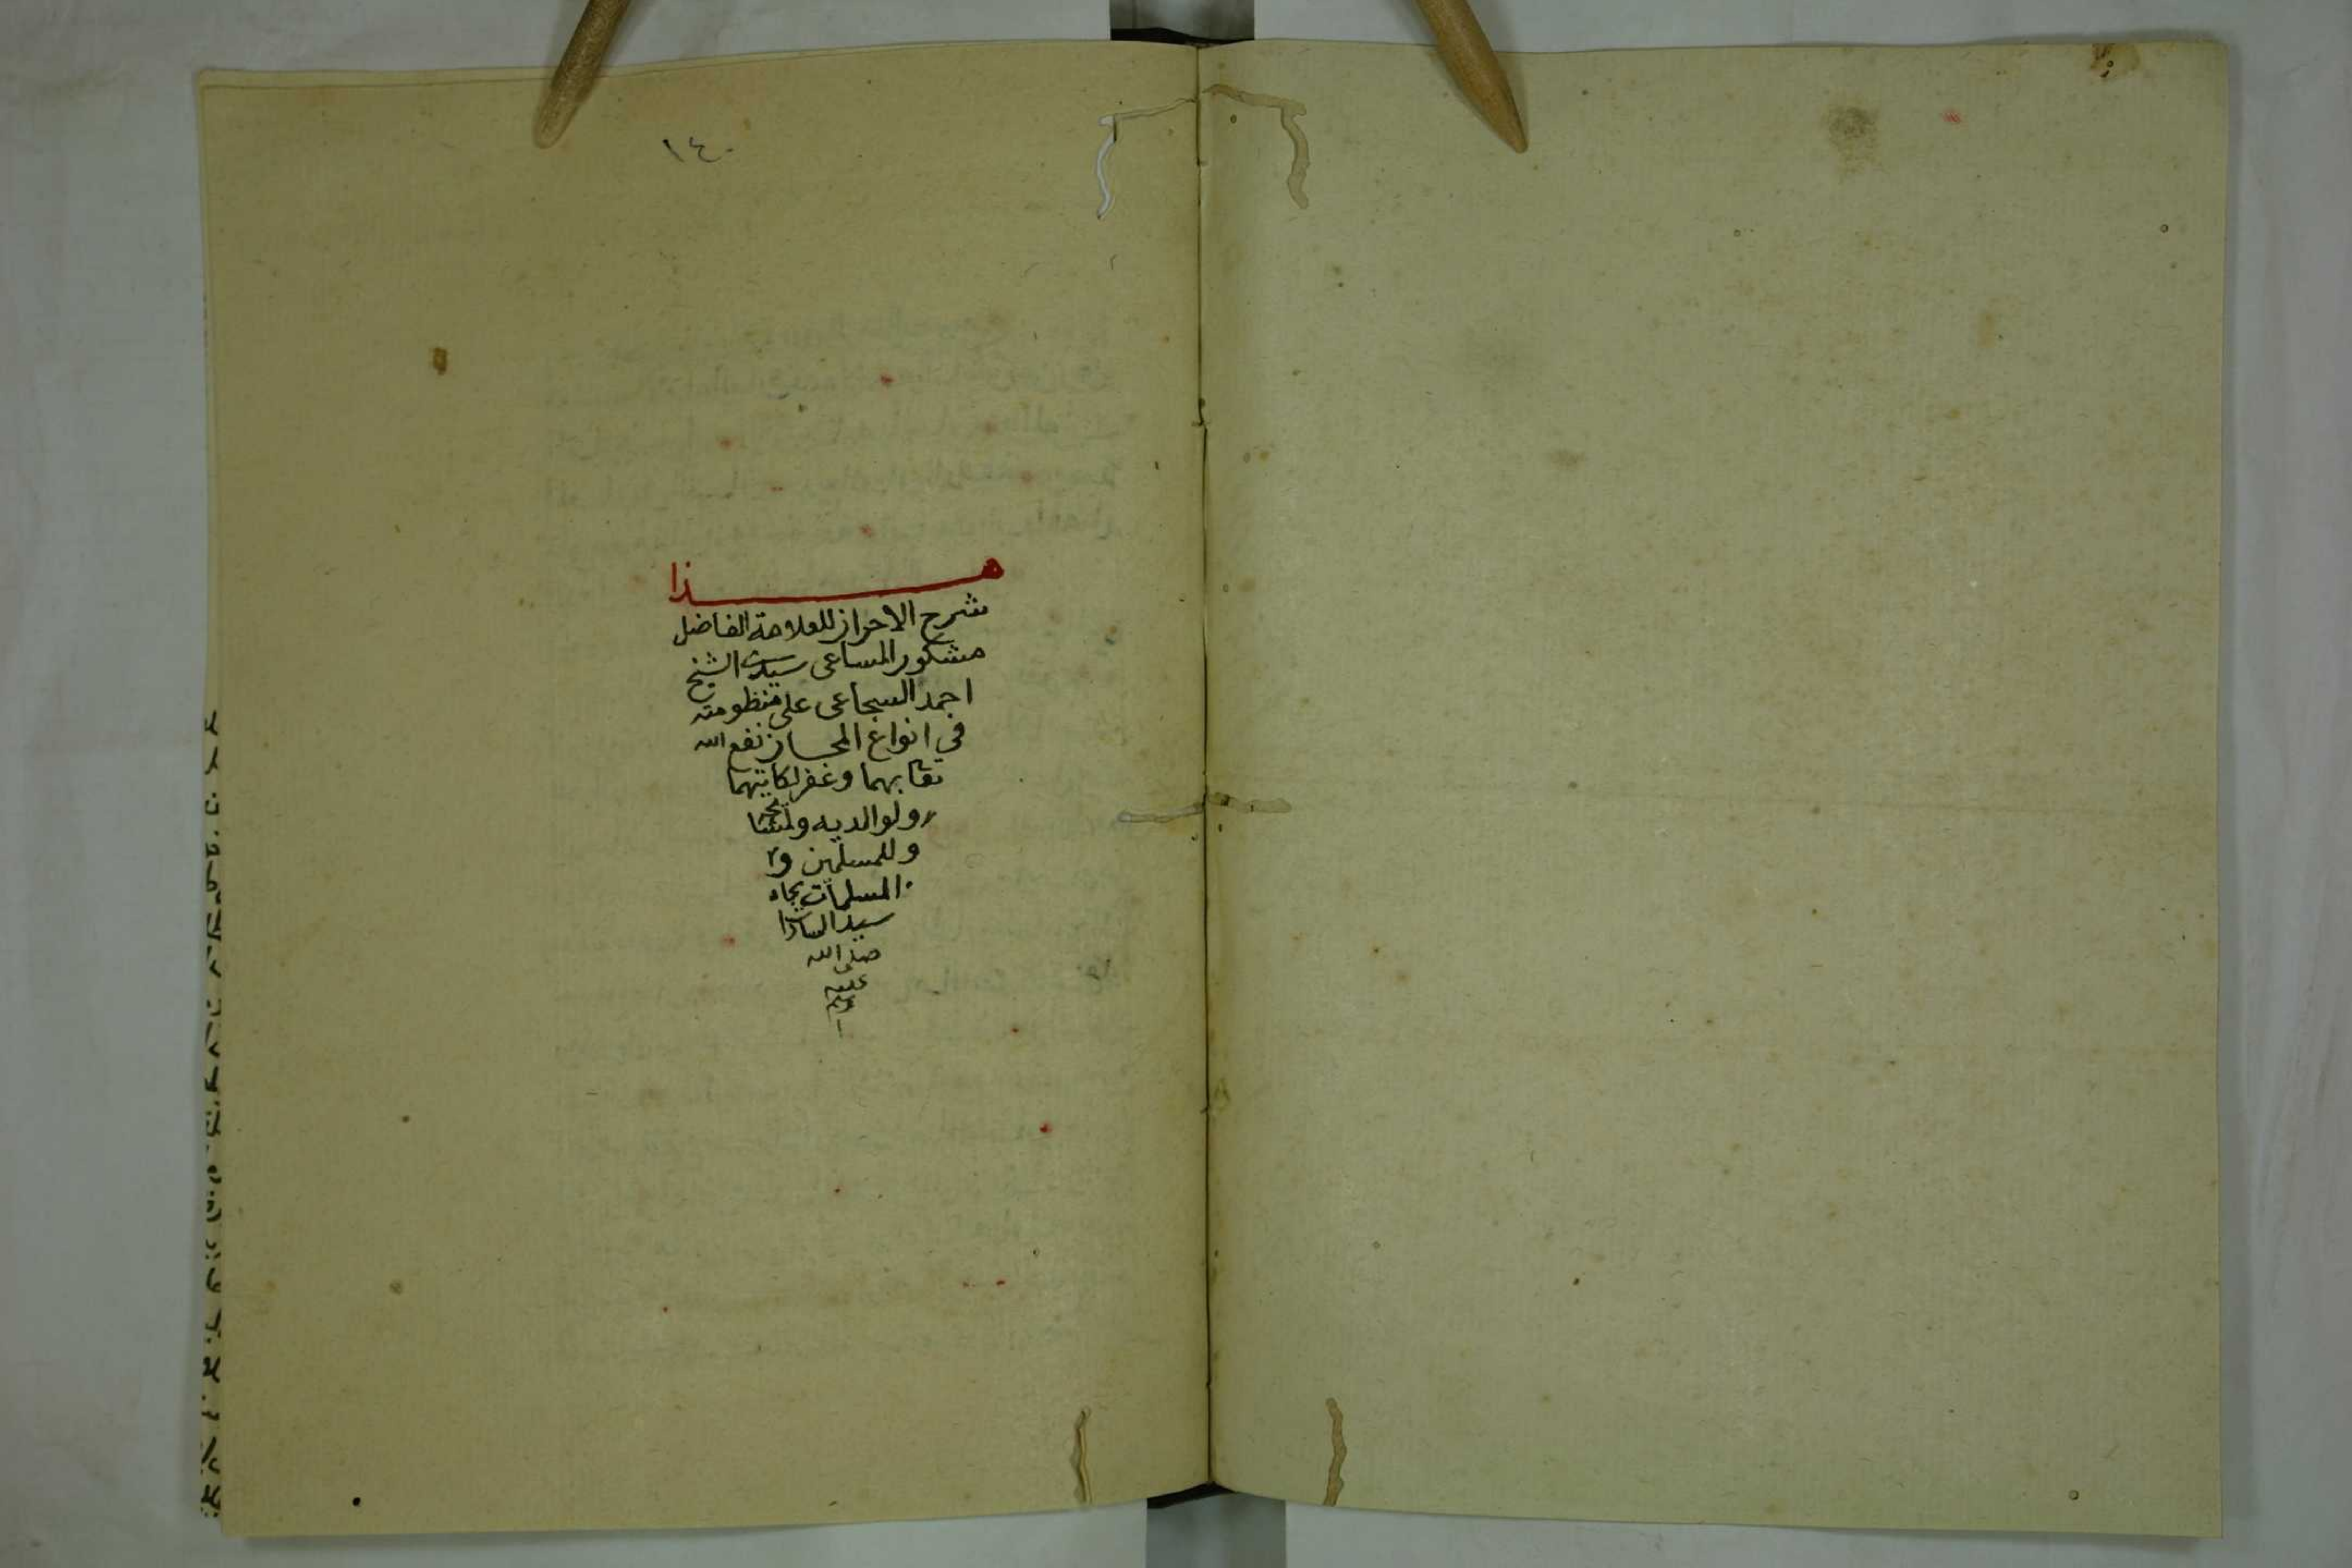 ١٤٠
هذا
شرح الاحراز للعلامة الفاضل
مشكور المساعى سيدى الشيخ
احمد السجاعى على منظومته
في انواع المجاز نفع الله
تعا بهما وغفر لكاتبهما
ولوالديه ولمشايخه
وللمسلمين و
المسلمات بجاه
سيد السادات
صلى الله
عليه
وسلم